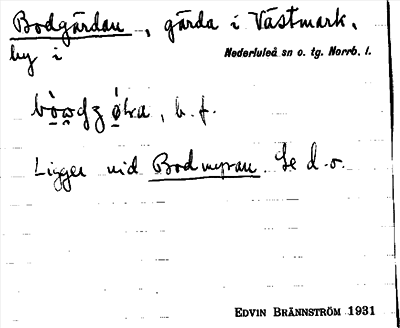 Bodgärdan, gärda i Västmark,
by i Nederluleå sn o. tg. Norrb. l.
b. f.
Ligger vid Bodmyran. Se d. o.
EDVIN BRÄNNSTRÖM 1931